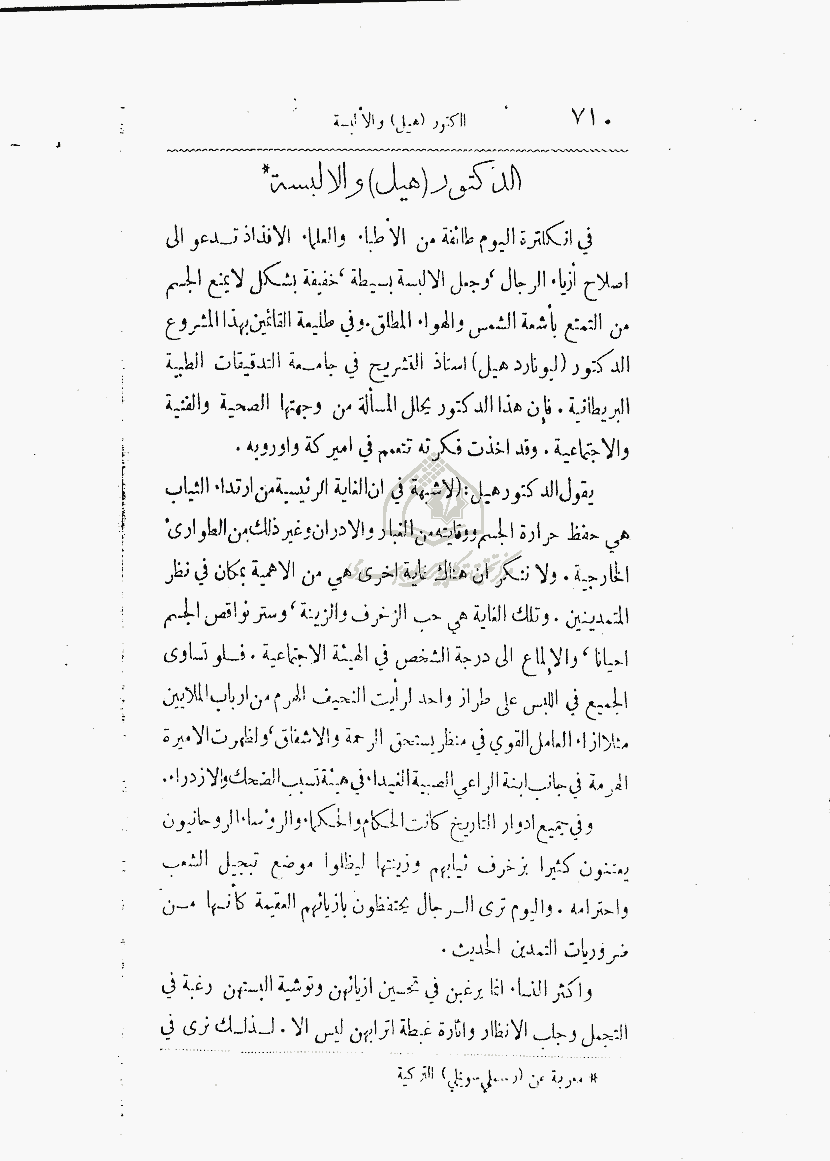 ٧١٠
الدكتور (هيل) والألبسة
الدكتور (هيل) والالبسة*
في انكلترة اليوم طائفة من الأطباء والعلماء الافذاذ تــدعو الى
اصلاح أزياء الرجال ، وجعل الالبسة بسيطة ، خفيفة بشكل لا يمنع الجسم
من التمتع بأشعة الشمس والهواء المطلق . وفي طليعة القائمين بهذا المشروع
الدكتور (ليونارد هيل) استاذ التشريح في جامعة التدقيقات الطبية
البريطانية . فإن هذا الدكتور يحلل المسألة من وجهتها الصحية والفنية
والاجتماعية . وقد اخذت فكرته تتعمم في اميركة واوروبه .
يقول الدكتور هيل : (لا شبهة في ان الغاية الرئيسية من ارتداء الثياب
هي حفظ حرارة الجسم ووقايته من الغبار والادران وغير ذلك من الطوارئ
الخارجية . ولا ننكر ان هناك غاية اخرى هي من الاهمية بمكان في نظر
المتمدينين . وتلك الغاية هي حب الزخرف والزينة ، وستر نواقص الجسم
احيانا ، والإلماع الى درجة الشخص في الهيئة الاجتماعية . فـلـو تساوى
الجميع في اللبس على طراز واحد لرأيت النحيف الهرم من ارباب الملايين
مثلا ازاء العامل القوي في منظر يستحق الرحمة والاشفاق ، ولظهرت الاميرة
الهرمة في جانب ابنة الراعي الصبية الغيداء في هيئة تسبب الضحك والازدراء .
وفي جميع ادوار التاريخ كانت الحكام والحكماء والرؤساء الروحانيون
يعتنون كثيرا بزخرف ثيابهم وزينتها ليظلوا موضع تبجيل الشعب
واحترامه . واليوم ترى الـرجال يحتفظون بازيائهم العقيمة كأنـها مـن
ضروريات التمدين الحديث .
واكثر النساء انما يرغبن في تحسين ازيائهن وتوشية البستهن رغبة في
التجمل وجلب الانظار واثارة غبطة اترابهن ليس الا . لـذلـك نرى في
* معربة عن التركية